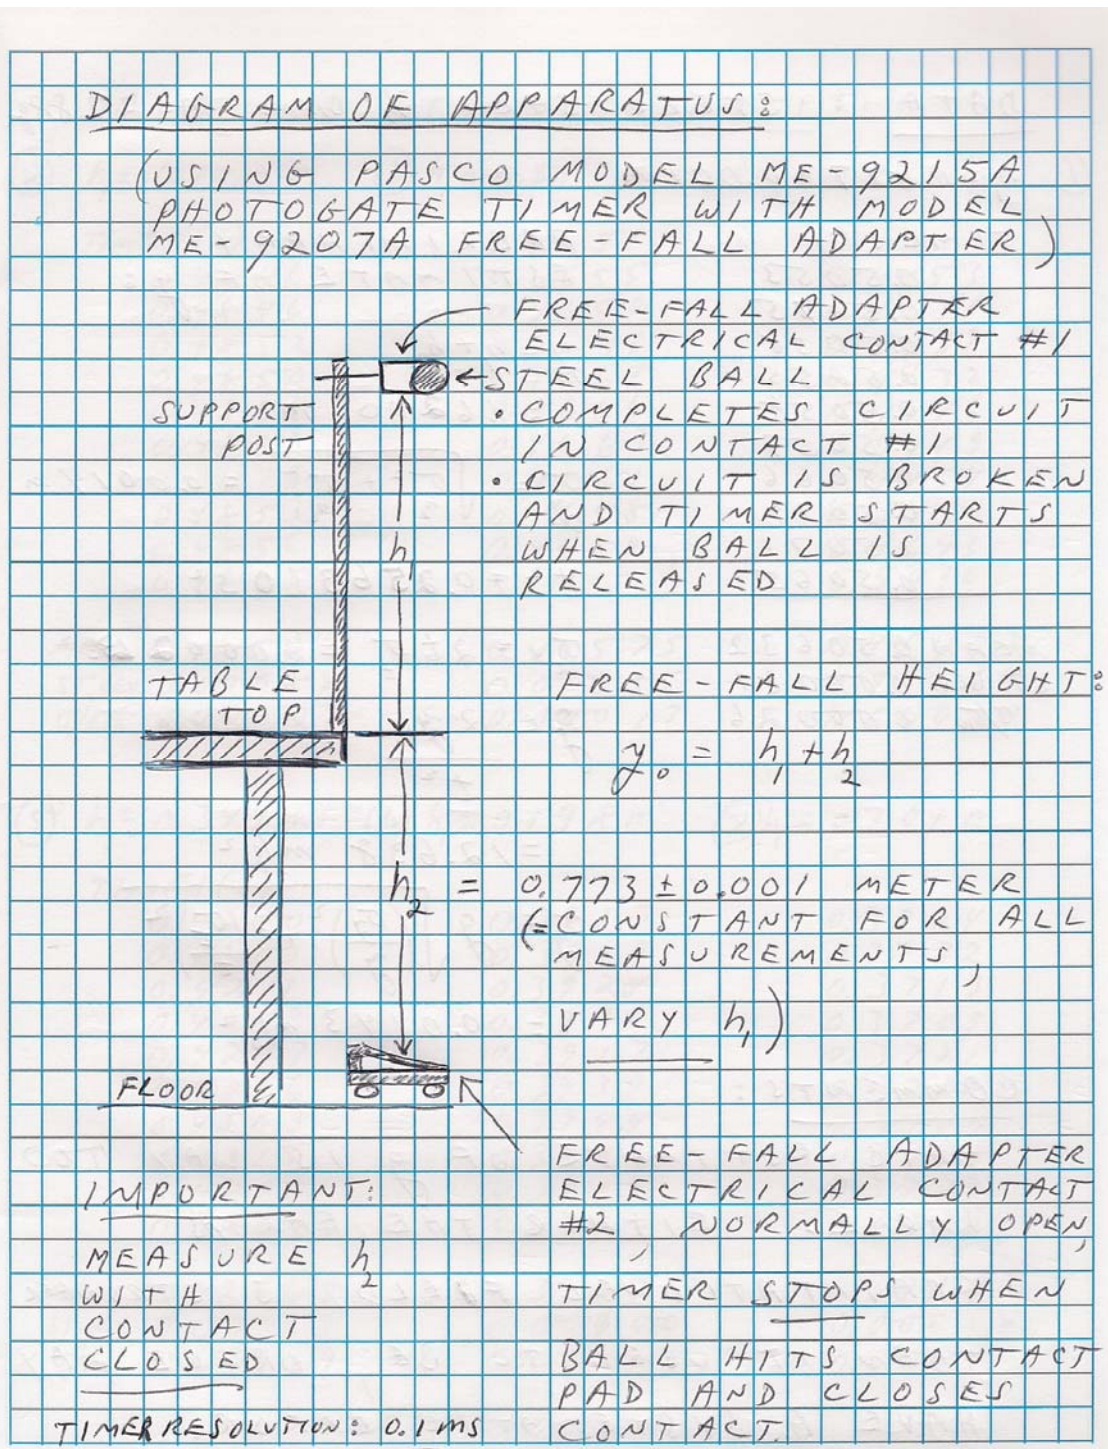 DIAGRAM OF APPARATUS:
(USING PASCO MODEL ME-9215A
PHOTOGATE TIMER WITH MODEL
ME-9207A FREE-FALL ADAPTER)
FREE-FALL ADAPTER
ELECTRICAL CONTACT #1
STEEL BALL
• COMPLETES CIRCUIT
IN CONTACT #1
• CIRCUIT IS BROKEN
AND TIMER STARTS
WHEN BALL IS
RELEASED
SUPPORT
POST
h₁
TABLE
TOP
FREE-FALL HEIGHT:
y₀ = h₁ + h₂
h₂ = 0.773 ± 0.001 METER
(= CONSTANT FOR ALL
MEASUREMENTS,
VARY h₁)
FLOOR
FREE-FALL ADAPTER
ELECTRICAL CONTACT
#2, NORMALLY OPEN,
TIMER STOPS WHEN
BALL HITS CONTACT
PAD AND CLOSES
CONTACT.
IMPORTANT:
MEASURE h₂
WITH
CONTACT
CLOSED
TIMER RESOLUTION: 0.1 ms